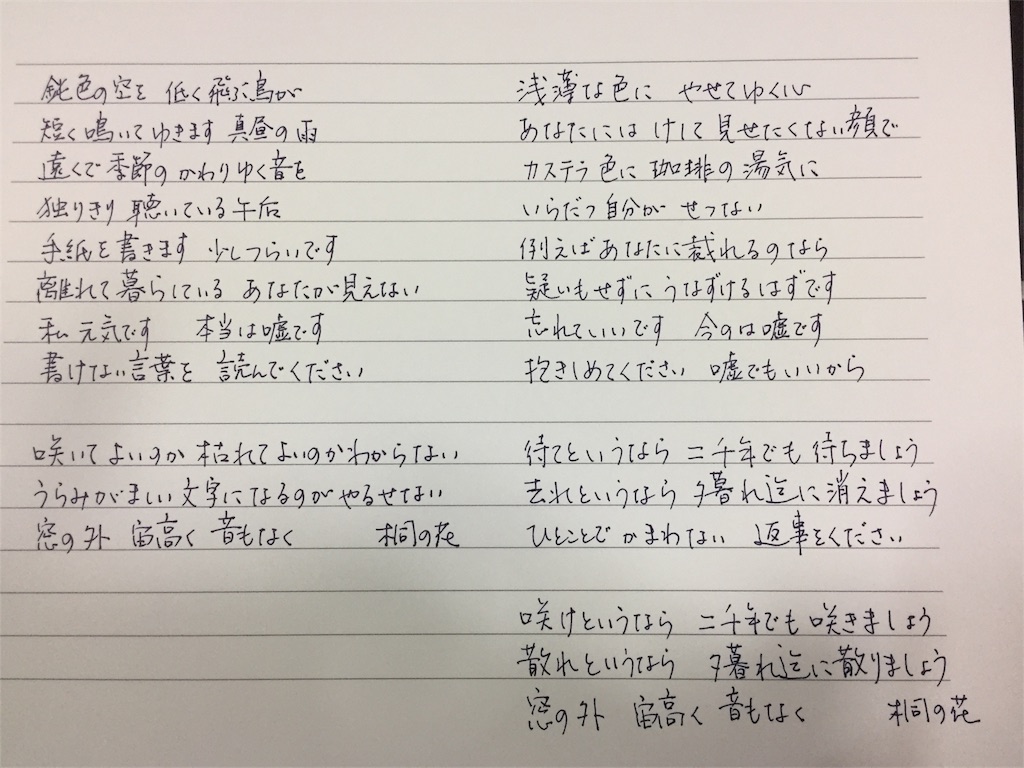 鈍色の空を 低く飛ぶ鳥が
短く鳴いてゆきます 真昼の雨
遠くで季節のかわりゆく音を
独りきり 聴いている午后
手紙を書きます 少しつらいです
離れて暮らしている あなたが見えない
私 元気です 本当は嘘です
書けない言葉を 読んでください
咲いてよいのか 枯れてよいのかわからない
うらみがましい文字になるのがやるせない
窓の外 宙高く 音もなく 桐の花
浅薄な色に やせてゆく心
あなたには けして見せたくない顔で
カステラ色に 珈琲の湯気に
いらだつ自分が せつない
例えばあなたに裁れるのなら
疑いもせずに うなずけるはずです
忘れていいです 今のは嘘です
抱きしめてください 嘘でもいいから
待てというなら 二千年でも 待ちましょう
去れというなら 夕暮れ迄に消えましょう
ひとことで かまわない 返事をください
咲けというなら 二千年でも 咲きましょう
散れというなら 夕暮れ迄に散りましょう
窓の外 宙高く 音もなく 桐の花